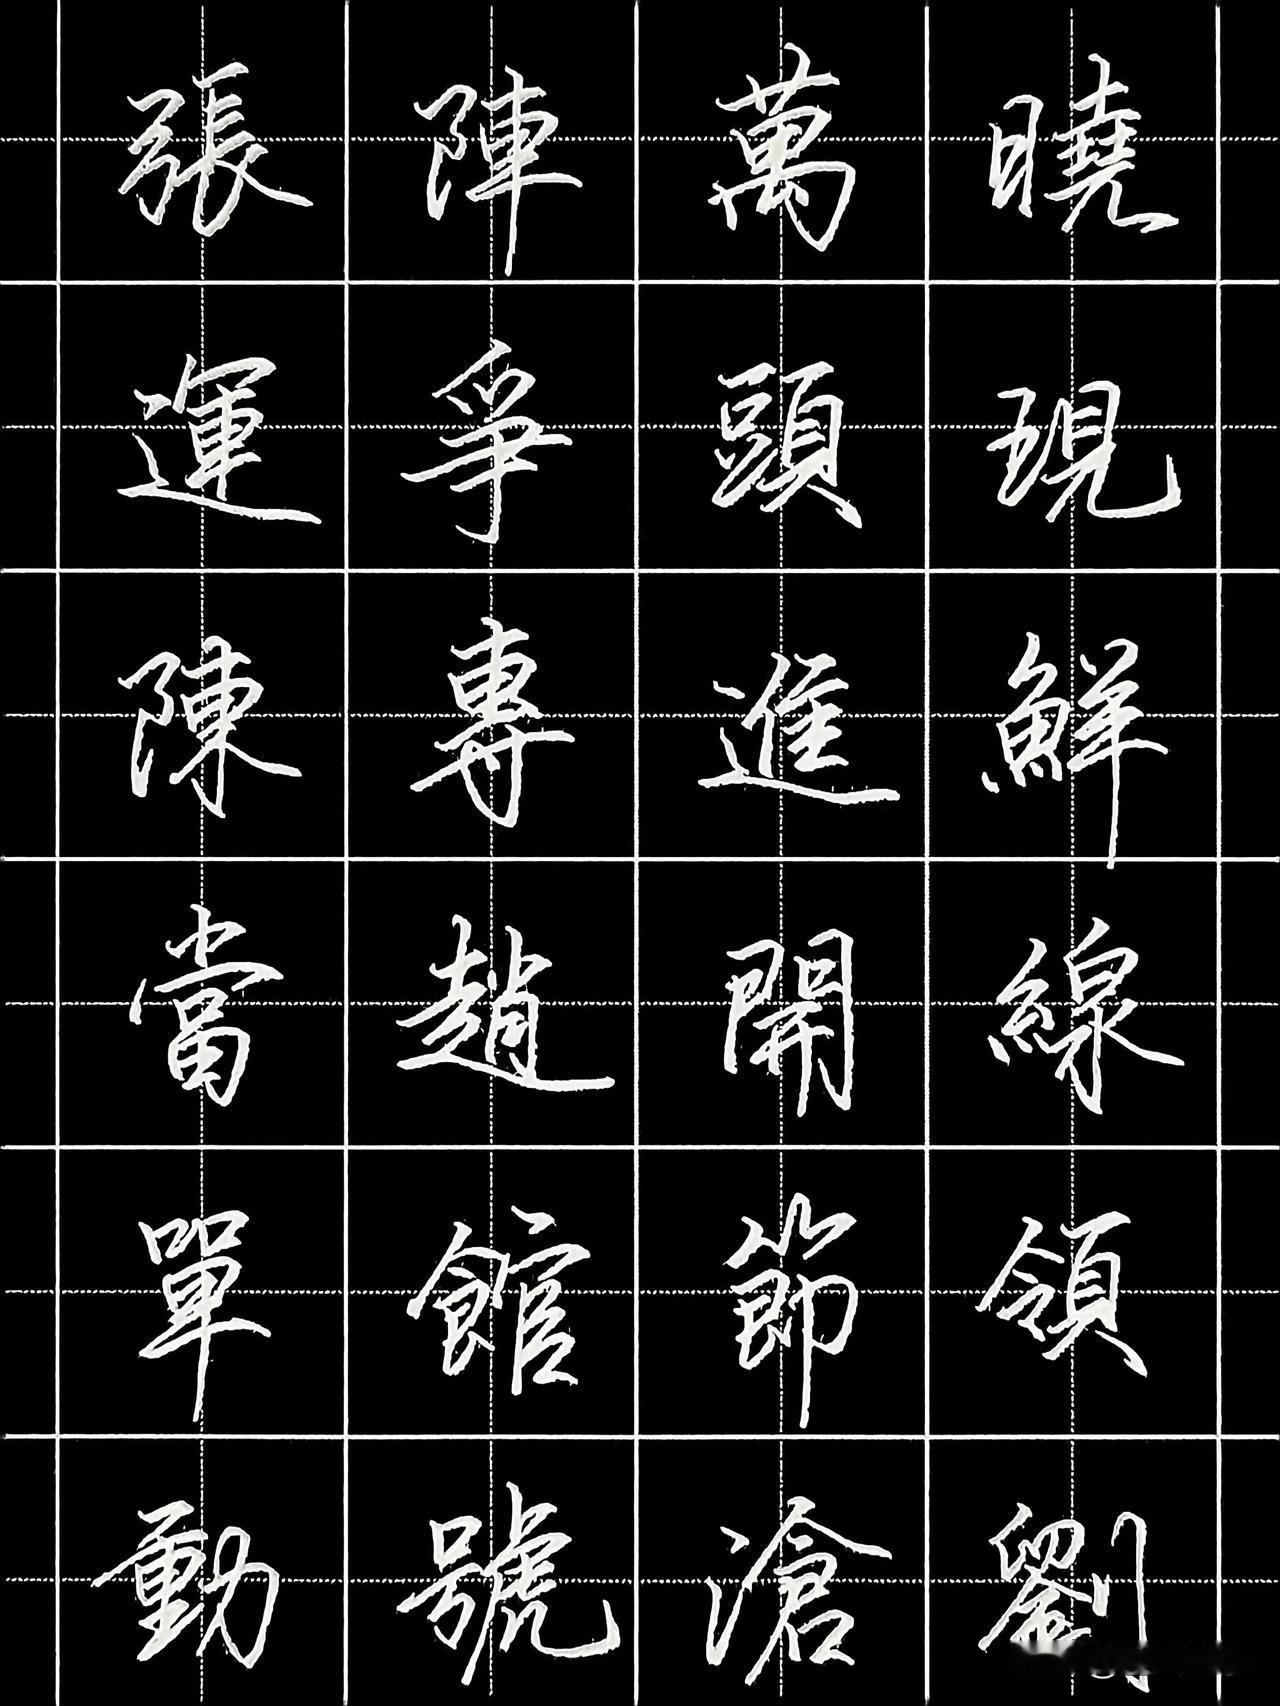 張陣萬曉
運爭頭現
陳專進鮮
當趙開線
單館節領
動號滄劉